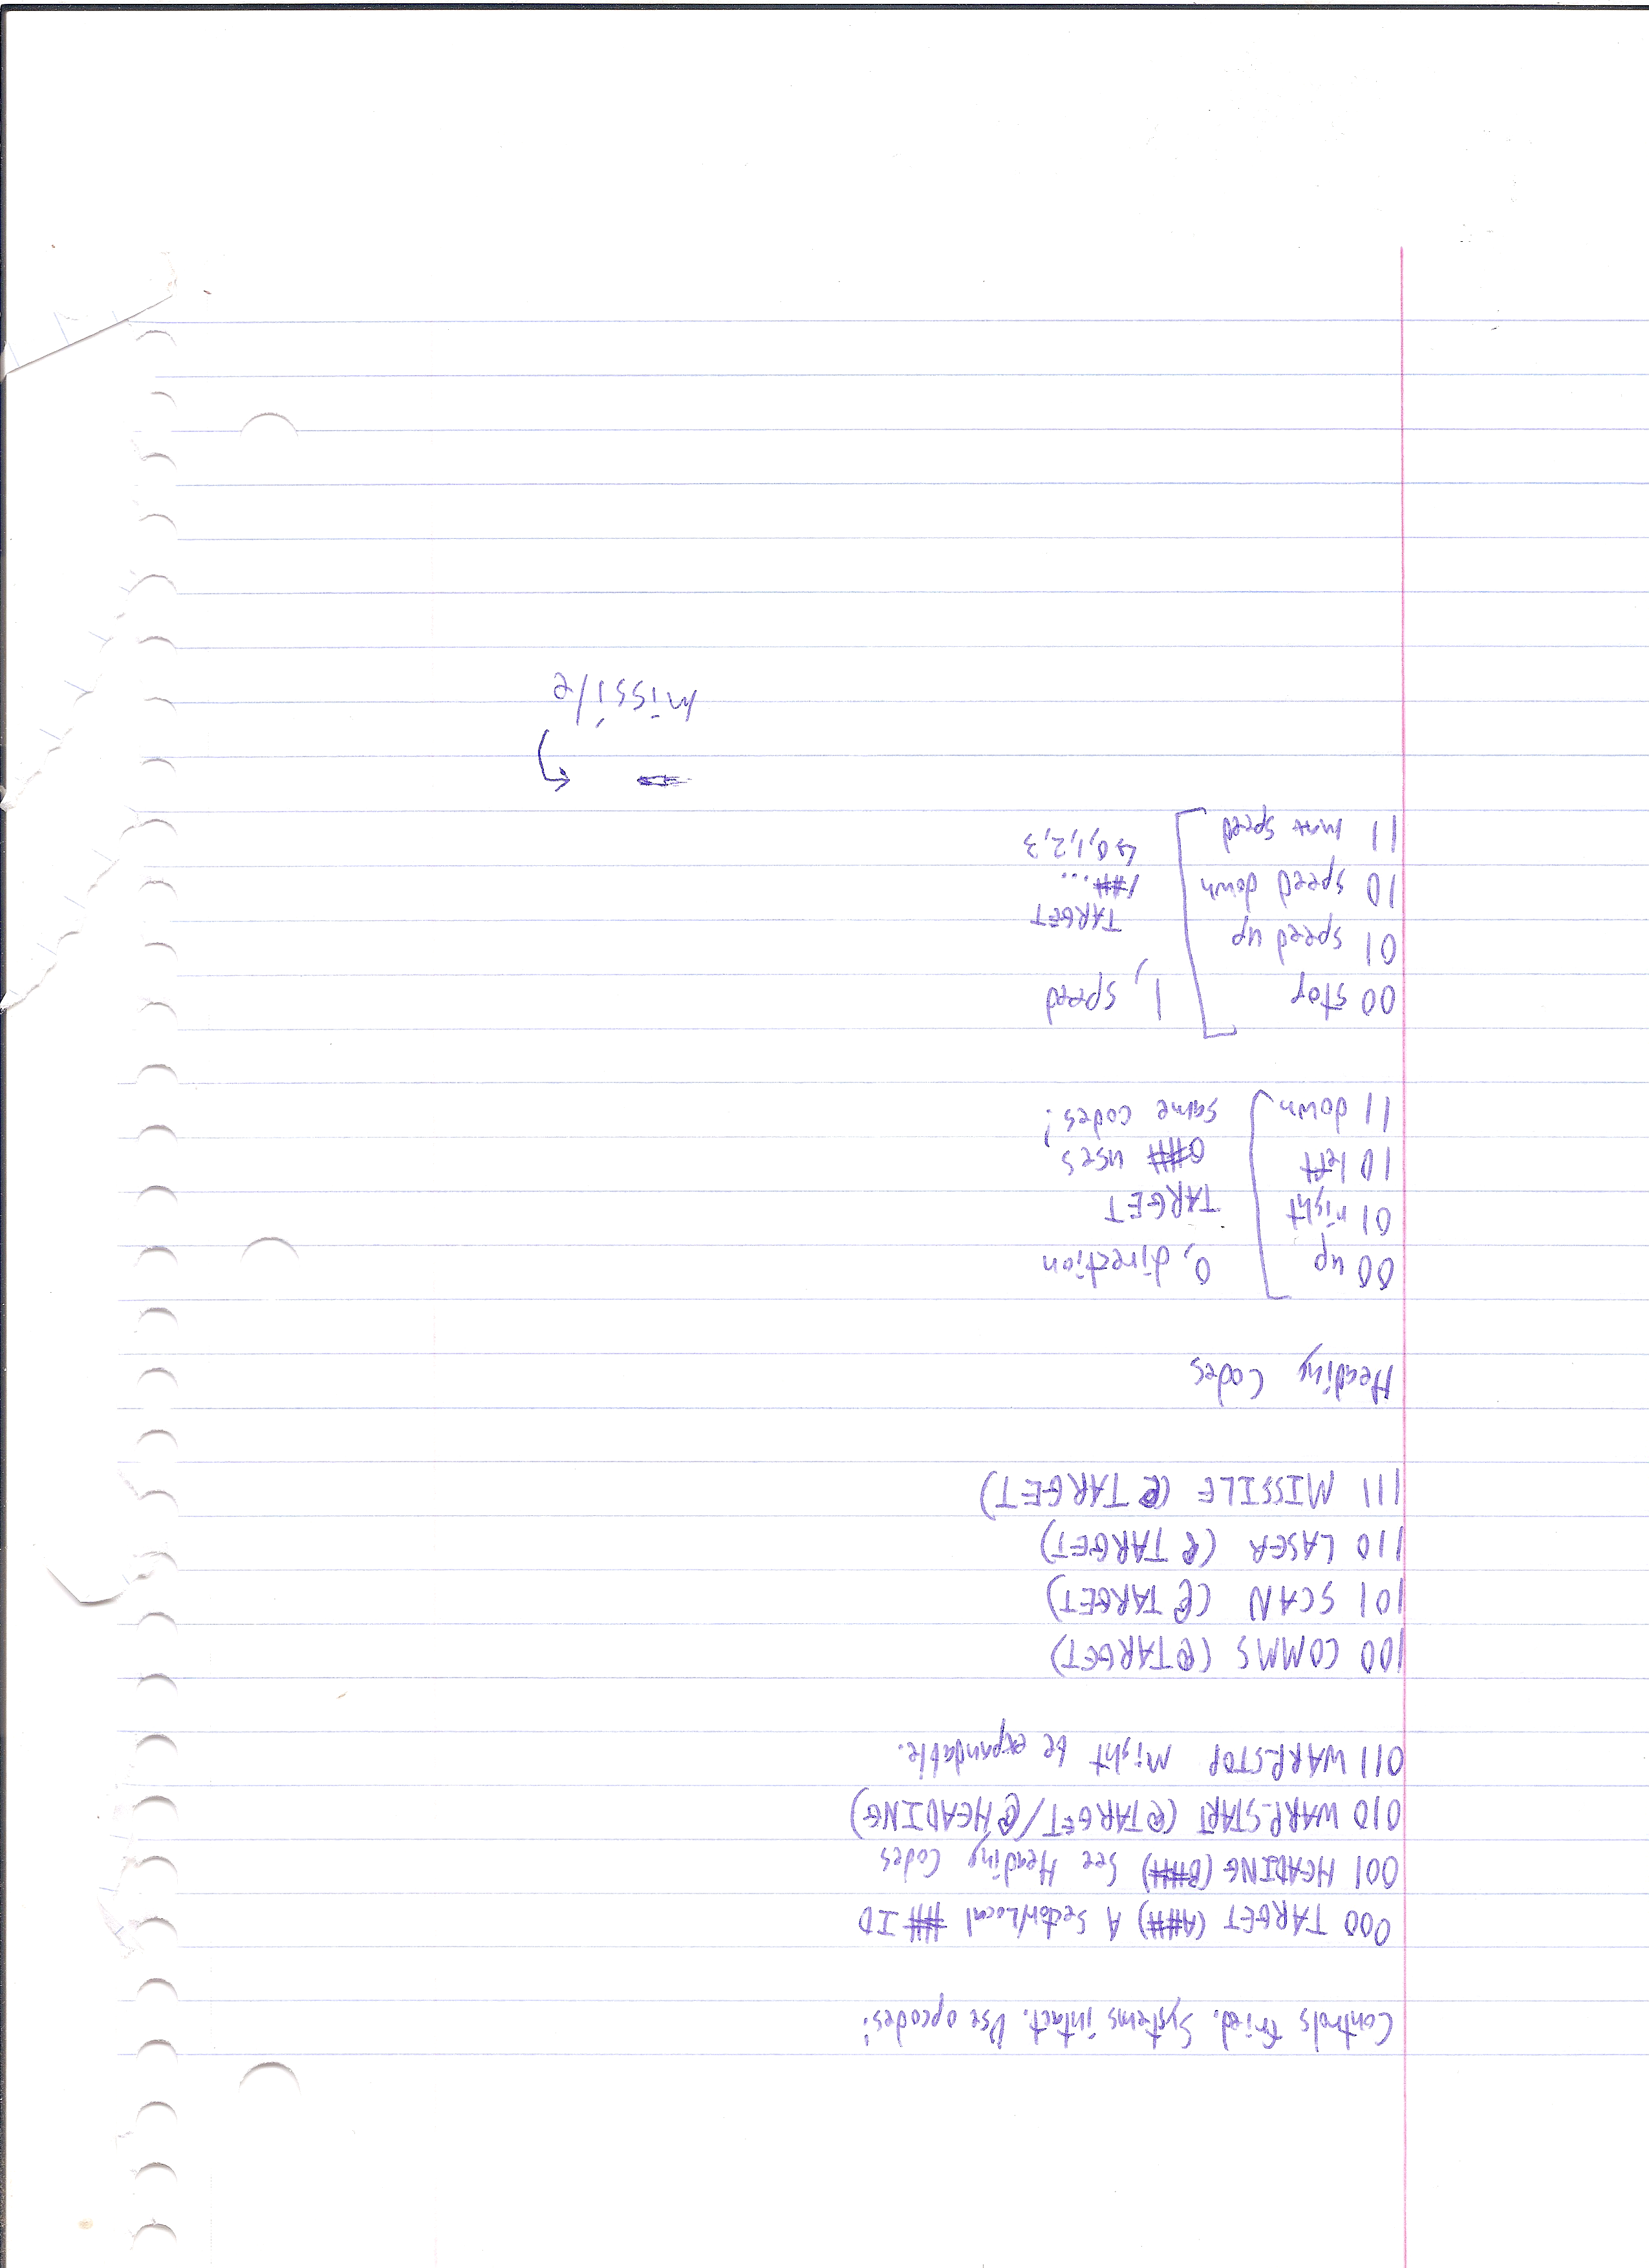 Controls fried. Systems intact. Use opcodes:
000 TARGET (A##) A Sector/Local ## ID
001 HEADING (B##) See Heading Codes
010 WARP_START (@TARGET/@HEADING)
011 WARP_STOP Might be expandable.
100 COMMS (@TARGET)
101 SCAN (@ TARGET)
110 LASER (@ TARGET)
111 MISSILE (@ TARGET)
Heading Codes
00 up
01 right
10 left
11 down
0, direction
TARGET
0## uses
same codes!
00 stop
01 speed up
10 speed down
11 max speed
1, speed
TARGET
1##...
↳0,1,2,3
missile